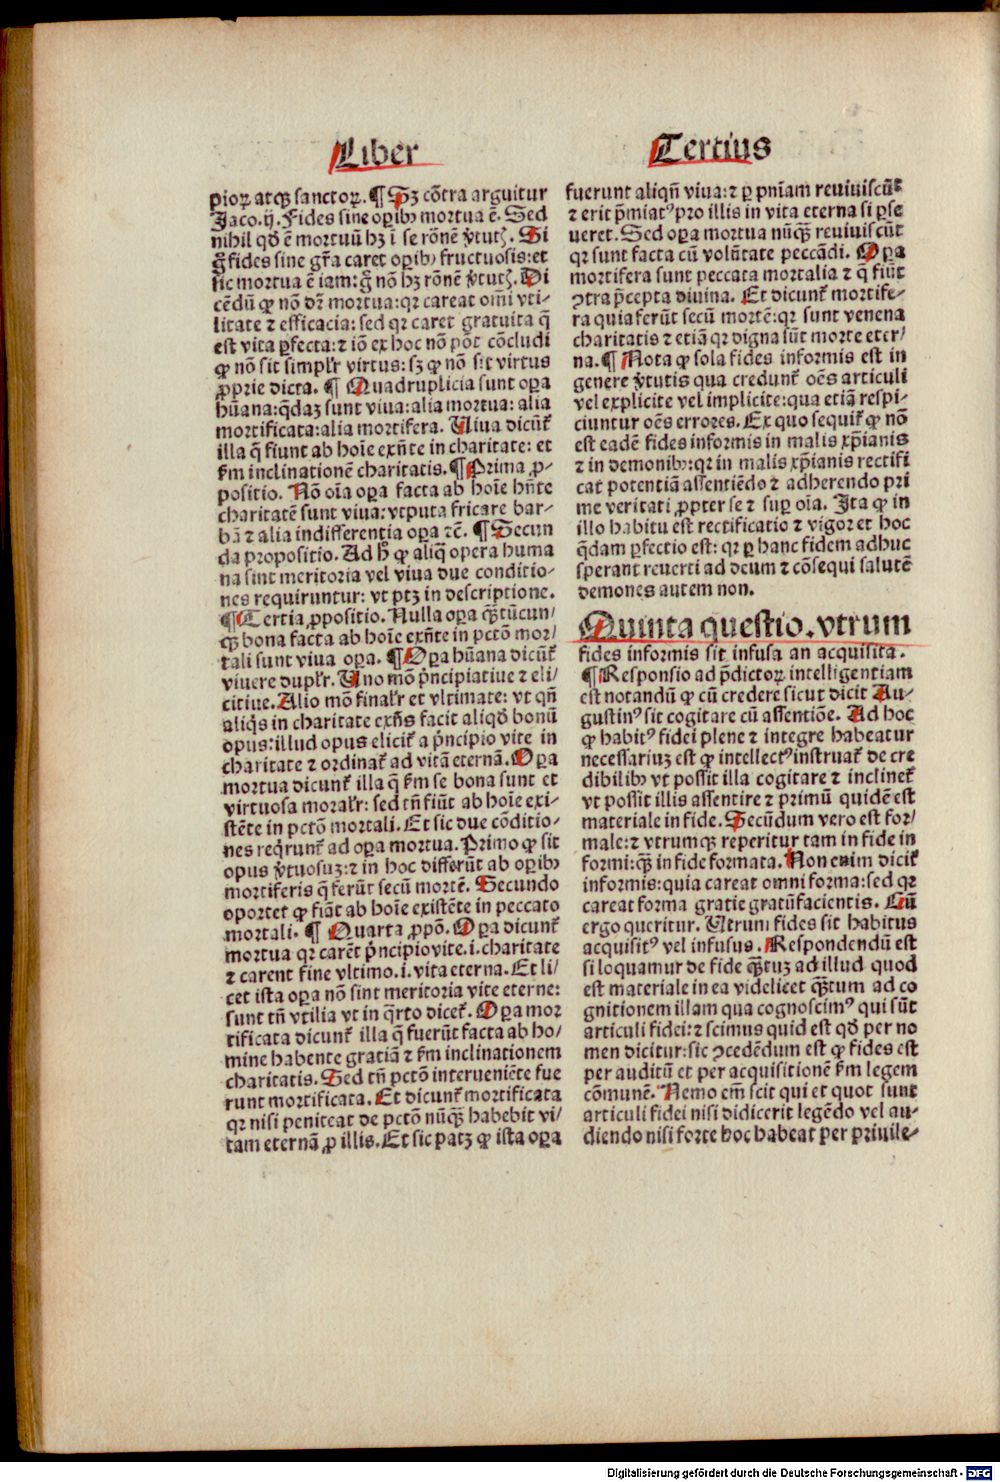 Liber
Tertius
pioꝝ atqꝫ sanctoꝝ. ¶ Sꝫ cõtra arguitur
Jaco.ij. Fides sine oꝑibꝰ mortua ē. Sed
nihil qđ ē mortuū hꝫ ī se rōnē ꝟtutꝭ. Si
g̃ fides sine gr̃a caret oꝑibꝰ fructuosis: et
sic mortua ē iam: g̃ nō hꝫ rōnē ꝟtutꝭ. Di
cēdū ꝙ nō dr̃ mortua: qꝛ careat om̄i vti-
litate ⁊ efficacia: sed qꝛ caret gratuita q̄
est vita ꝑfecta: ⁊ iō ex hoc nō pōt cōcludi
ꝙ nō sit simpl'r virtus: sꝫ ꝙ nō sit virtus
ꝓprie dicta. ¶ Quadruplicia sunt oꝑa
hūana: q̄daꝫ sunt viua: alia mortua: alia
mortificata: alia mortifera. Uiua dicunt᷑
illa q̄ fiunt ab hoīe exñte in charitate: et
ẜm inclinationē charitatis. ¶ Prima ꝓ-
positio. Nō oīa oꝑa facta ab hoīe hñte
charitatē sunt viua: vtputa fricare bar-
bā ⁊ alia indifferentia oꝑa ⁊c̄. ¶ Secun
da propositio. Ad h̥ ꝙ aliq̄ opera huma
na sint meritoria vel viua due conditio-
nes requiruntur: vt ptꝫ in descriptione.
¶ Tertia ꝓpositio. Nulla oꝑa q̄ꝫtūcun/
qꝫ bona facta ab hoīe exñte in pctō mor/
tali sunt viua oꝑa. ¶ Oꝑa hūana dicunt᷑
viuere dupl'r. Uno mō pͥncipiatiue ⁊ eli/
citiue. Alio mō final'r et vltimate: vt qñ
aliqͥs in charitate exñs facit aliqđ bonū
opus: illud opus elicit᷑ a pͥncipio vite in
charitate ⁊ ordinat᷑ ad vitā eternā. Oꝑa
mortua dicunt᷑ illa q̄ ẜm se bona sunt et
virtuosa moral'r: sed tñ fiūt ab hoīe exi-
stēte in pctō mortali. Et sic due cōditio-
nes reqͥrunt᷑ ad oꝑa mortua. Primo ꝙ sit
opus ꝟtuosuꝫ: ⁊ in hoc differūt ab oꝑibꝰ
mortiferis q̄ ferūt secū mortē. Secundo
oportet ꝙ fiāt ab hoīe existēte in peccato
mortali. ¶ Quarta ꝓpō. Oꝑa dicunt᷑
mortua qꝛ carēt pͥncipio vite.i. charitate
⁊ carent fine vltimo.i. vita eterna. Et li/
cet ista oꝑa nō sint meritoria vite eterne:
sunt tñ vtilia vt in q̄rto dicet᷑. Oꝑa mor
tificata dicunt᷑ illa q̄ fuerūt facta ab ho/
mine habente gratiā ⁊ ẜm inclinationem
charitatis. Sed tñ pctō interueniēte fue
runt mortificata. Et dicunt᷑ mortificata
qꝛ nisi peniteat de pctō nūqꝫ̄ habebit vi/
tam eternā ꝓ illis. Et sic patꝫ ꝙ ista oꝑa
fuerunt aliqñ viua: ⁊ ꝑ pn̄iam reuiuiscūt
⁊ erit p̄miatꝰ pro illis in vita eterna si ꝑse
ueret. Sed oꝑa mortua nūqꝫ̄ reuiuiscūt
qꝛ sunt facta cū volūtate peccādi. Oꝑa
mortifera sunt peccata mortalia ⁊ q̄ fiūt
ꝯtra p̄cepta diuina. Et dicunt᷑ mortife-
ra quia ferūt secū mortē: qꝛ sunt venena
charitatis ⁊ etiā qꝛ digna sūt morte eter/
na. ¶ Nota ꝙ sola fides informis est in
genere ꝟtutis qua credunt᷑ oēs articuli
vel explicite vel implicite: qua etiā respi-
ciuntur oēs errores. Ex quo sequit᷑ ꝙ nō
est eadē fides informis in malis xp̄ianis
⁊ in demonibꝰ: qꝛ in malis xp̄ianis rectifi
cat potentiā assentiēdo ⁊ adherendo pri
me veritati ꝓpter se ⁊ suꝑ oīa. Ita ꝙ in
illo habitu est rectificatio ⁊ vigor et hoc
q̄dam ꝑfectio est: qꝛ ꝑ hanc fidem adhuc
sperant reuerti ad deum ⁊ cōsequi salutē
demones autem non.
Quinta questio. vtrum
fides informis sit infusa an acquisita.
¶ Responsio ad p̄dictoꝝ intelligentiam
est notandū ꝙ cū credere sicut dicit Au-
gustinꝰ sit cogitare cū assentiōe. Ad hoc
ꝙ habitꝰ fidei plene ⁊ integre habeatur
necessariuꝫ est ꝙ intellectꝰ instruat᷑ de cre
dibilibꝰ vt possit illa cogitare ⁊ inclinet᷑
vt possit illis assentire ⁊ primū quidē est
materiale in fide. Secūdum vero est for/
male: ⁊ vtrumqꝫ reperitur tam in fide in
formi: qꝫ̄ in fide formata. Non enim dicit᷑
informis: quia careat omni forma: sed qꝛ
careat forma gratie gratūfacientis. Cū
ergo queritur. Utrum fides sit habitus
acquisitꝰ vel infusus. Respondendū est
si loquamur de fide q̄ꝫtuꝫ ad illud quod
est materiale in ea videlicet q̄ꝫtum ad co
gnitionem illam qua cognoscimꝰ qui sūt
articuli fidei: ⁊ scimus quid est qđ per no
men dicitur: sic ꝯcedēdum est ꝙ fides est
per auditū et per acquisitionē ẜm legem
cōmunē. Nemo em̄ scit qui et quot sunt
articuli fidei nisi didicerit legēdo vel au-
diendo nisi forte hoc habeat per priuile-
Digitalisierung gefördert durch die Deutsche Forschungsgemeinschaft - DFG